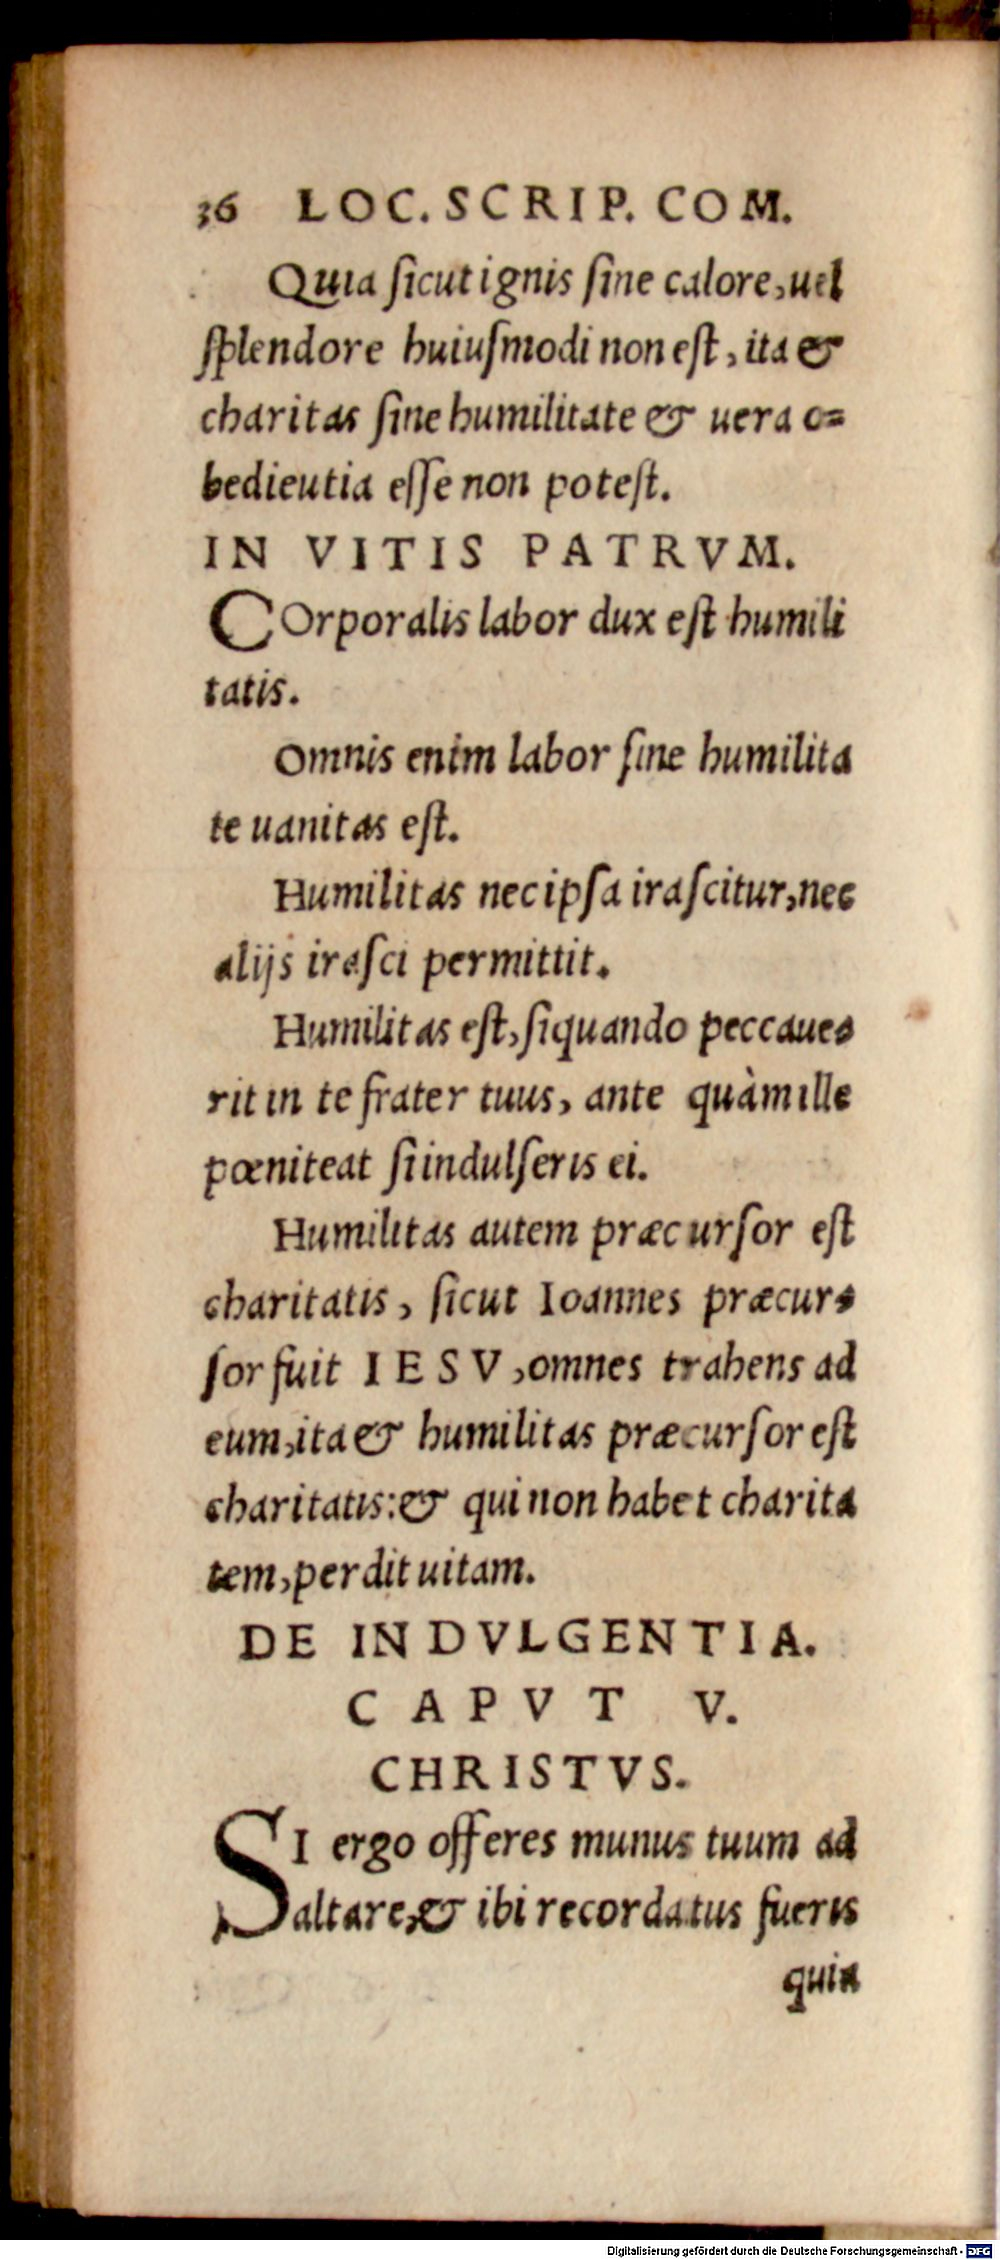 36 LOC. SCRIP. COM.
Quia ſicut ignis ſine calore, uel
ſplendore huiuſmodi non eſt, ita &
charitas ſine humilitate & uera o=
bedieutia eſſe non poteſt.
IN VITIS PATRVM.
COrporalis labor dux eſt humili
tatis.
Omnis enim labor ſine humilita
te uanitas eſt.
Humilitas nec ipſa iraſcitur, nec
alijs iraſci permittit.
Humilitas eſt, ſiquando peccaue=
rit in te frater tuus, ante quàm ille
pœniteat ſi indulſeris ei.
Humilitas autem præcurſor eſt
charitatis, ſicut Ioannes præcur=
ſor fuit IESV, omnes trahens ad
eum, ita & humilitas præcurſor eſt
charitatis: & qui non habet charita
tem, perdit uitam.
DE INDVLGENTIA.
CAPVT V.
CHRISTVS.
SI ergo offeres munus tuum ad
altare, & ibi recordatus fueris
quia
Digitalisierung gefördert durch die Deutsche Forschungsgemeinschaft - DFG